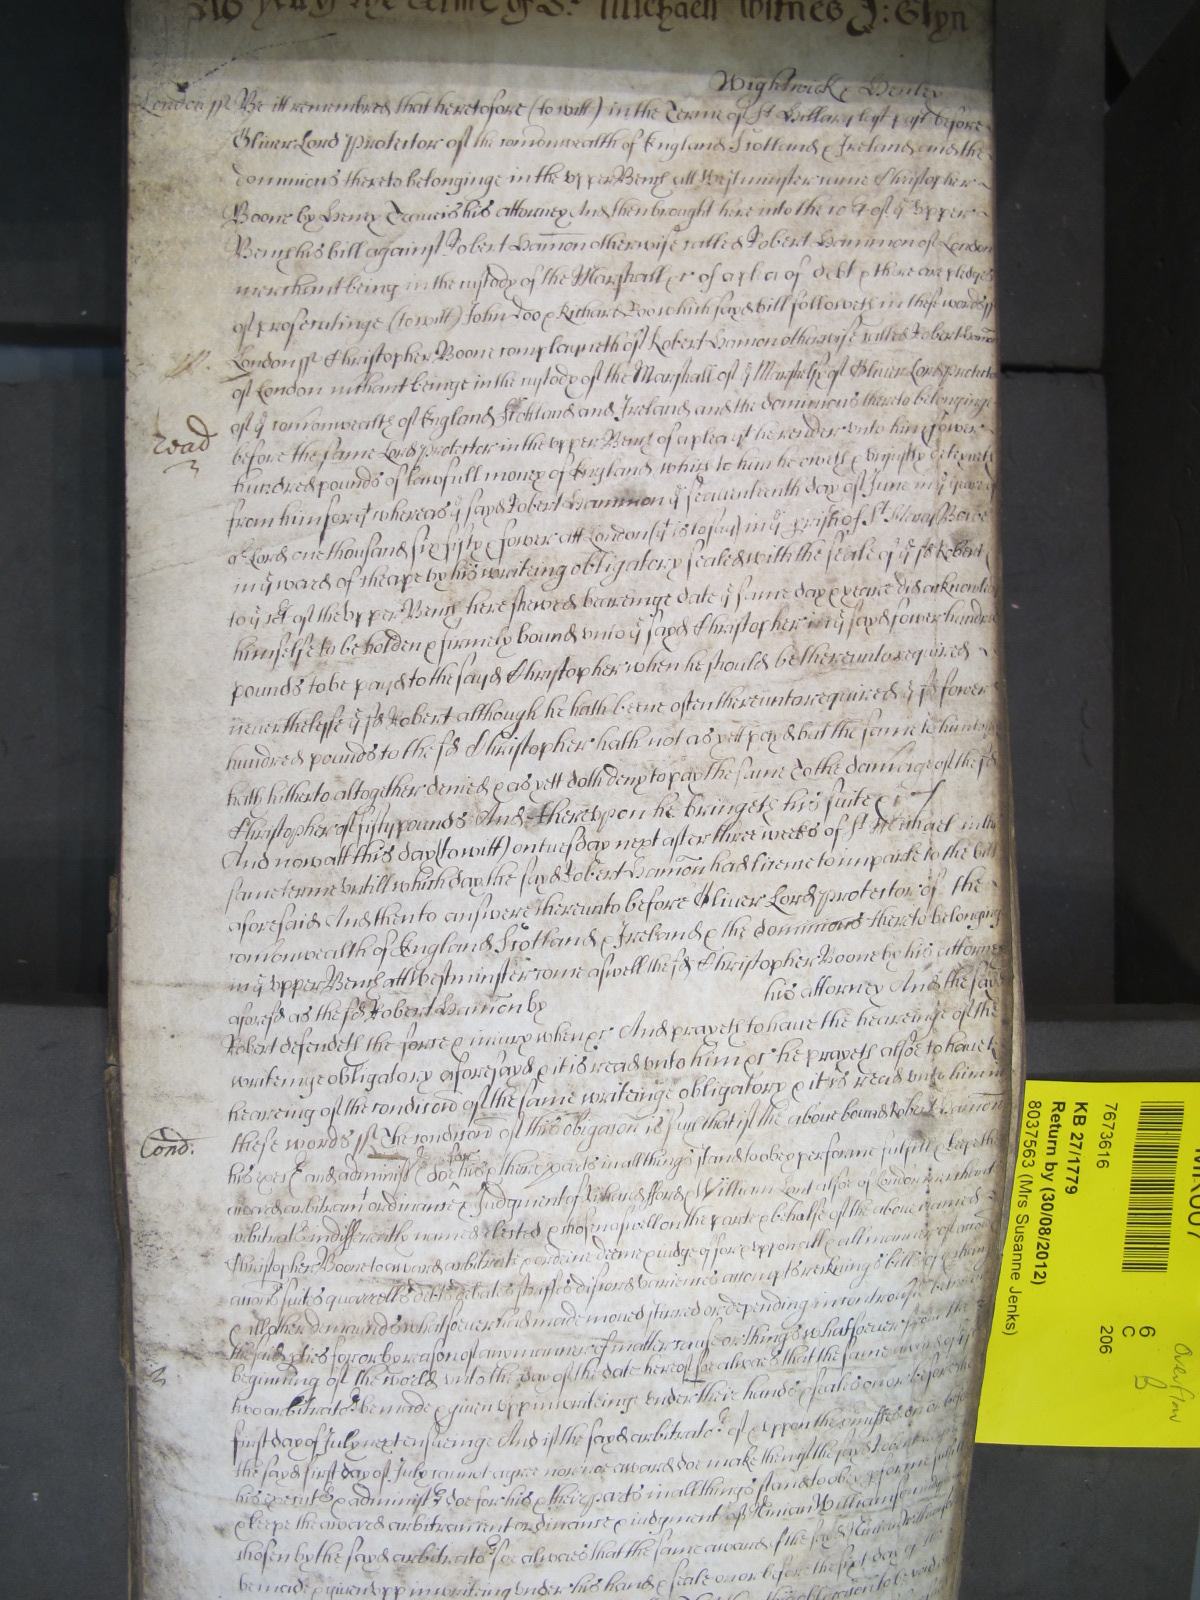 of the terme of St. Michaell Witnes J: Glyn
Wightwick & Henley
London ss Be itt remembred that heretofore (to witt) in the Terme of St Hillary last past before
Oliver Lord Protector of the comonwealth of England Scotland & Ireland and the
dominions thereto belonginge in the upper Bench att Westminster came Christopher
Boone by Henry Travers his attorney And then brought here into the Co^rt of y^e Upper
Bench his bill against Robert Hamon otherwise called Robert Hammon of London
merchant being in the custody of the Marshall &c of a plea of debt & there are pledges
of prosecutinge (to witt) John Doo & Richard Roo which sayd bill followeth in these words ss
London ss Christopher Boone complayneth of Robert Hamon otherwise called Robert Hamon
of London m^rchant beinge in the custody of the Marshall of y^e Marshalsy of Oliver Lord Protector
of y^e comonwealth of England Scotland and Ireland and the dominions thereto belonginge
Read
before the same Lord Protector in the upper Bench of a plea y^t he render unto him fower
hundred pounds of lawfull money of England which to him he oweth & uniustly deteyneth
from him for y^t whereas y^e sayd Robert Hammon y^e seaventeenth day of June in y^e yeare of
o^r Lord one thousand six fifty & fower att London (y^t is to say) in y^e p^rish of St Mary Bowe
in y^e ward of Cheape by his writeing obligatory sealed with the seale of y^e sd Robert
to y^e Co^rt of the Upper Bench here shewed beareinge date y^e same day & yeare did acknowledge
himselfe to be holden & firmely bound unto y^e sayd Christopher in y^e sayd fower hundred
pounds to be payd to the sayd Christopher when he should be thereunto required
neverthelesse y^e sd Robert although he hath beene often thereunto required y^e sd fower
hundred pounds to the sd Christopher hath not as yett payd but the same to him to pay
hath hitherto altogether denied & as yett doth deny to pay the same To the damage of the sd
Christopher of fifty pounds And thereupon he bringeth his suite &c
And now att this day (to witt) on tuesday next after three weekes of St Michael in the
same terme untill which day the sayd Robert Hamon had licence to imparle to the bill
aforesaid And then to answere thereunto before Oliver Lord Protector of the
comonwealth of England Scotland & Ireland & the dominions thereto belonging
in y^e upper Bench att Westminster come aswell the sd Christopher Boone by his attorney
aforesd as the sd Robert Hamon by his attorney And the sayd
Robert defendeth the force & iniury when &c And prayeth to have the heareinge of the
writeinge obligatory aforesayd & it is read unto him &c he prayeth alsoe to have the
heareing of the condicion of the same writeinge obligatory & it is read unto him in
Cond:
these words ss The condicion of this obligacon is such that if the above bound Robert Hamon
his exec^rs and administ^rs doe for his & there parts in all things stand to obey performe fulfill & keepe the
award arbitram^t ordinance & Judgment of Richard Fford & William alsoe of London merchants
arbitrat^rs indifferently named elected & chosen aswell on the parte & behalfe of the above named
Christopher Boone to award arbitrate & ordeine deeme & iudge of for & uppon all & all manner of
accons suites quarrells debts debates strifes discords variences accompts reckonings bills
& all other demands whatsoever had made moved stirred or depending in controversie betweene
the said p^ties for or by reason of any manner of matter cause or things whatsoever from the
beginning of the world unto the day of the date hereof soe alwaes that the same award of
two arbitrat^rs be made & given upp in writeinge under their hands & seales on or before the
first day of July next ensueinge And if the sayd arbitrat^rs of & uppon the p^rmisses on or before
the sayd first day of July cannot agree nor noe award doe make then if the sayd Robert
his execut^rs & administ^rs doe for his & their parts in all things stand to obey p^rforme fulfill
& keepe the award arbitrament ordinance & iudgment of Ninian Williamson
chosen by the sayd arbitrato^rs soe alwaes that the same award of the sayd Ninian Williamson
be made & given upp in writeing under his hand & seale on or before the sixt day of
7673616
KB 27/1779
Return by (30/08/2012)
8037563 (Mrs Susanne Jenks)
6
C
206
Overflow